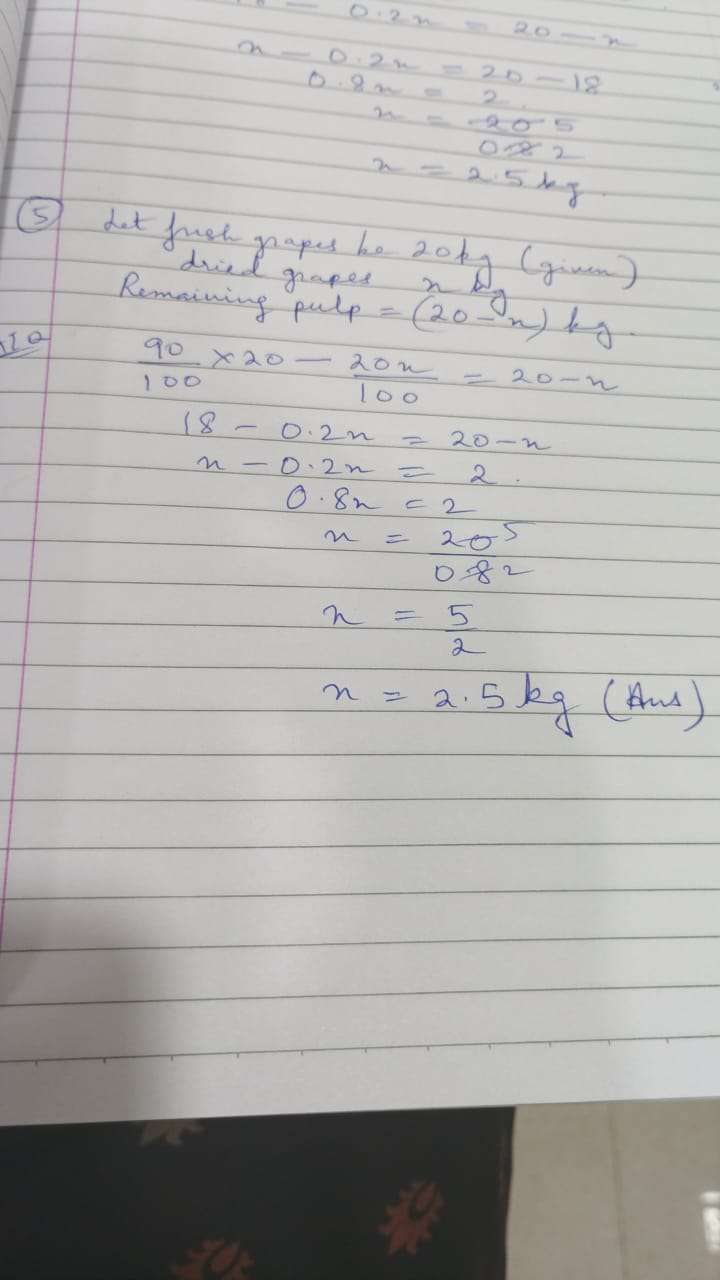 - 0.2x = 20 - x
x - 0.2x = 20 - 18
0.8x = 2.
x = 20 5 / 0.8 2
x = 2.5 kg.
(5) Let fresh grapes be 20kg (given)
dried grapes x kg
Remaining pulp = (20-x) kg.
90/100 × 20 - 20x/100 = 20-x
18 - 0.2x = 20-x
x - 0.2x = 2.
0.8x = 2
x = 20 5 / 0.8 2
x = 5/2
x = 2.5 kg (Ans)